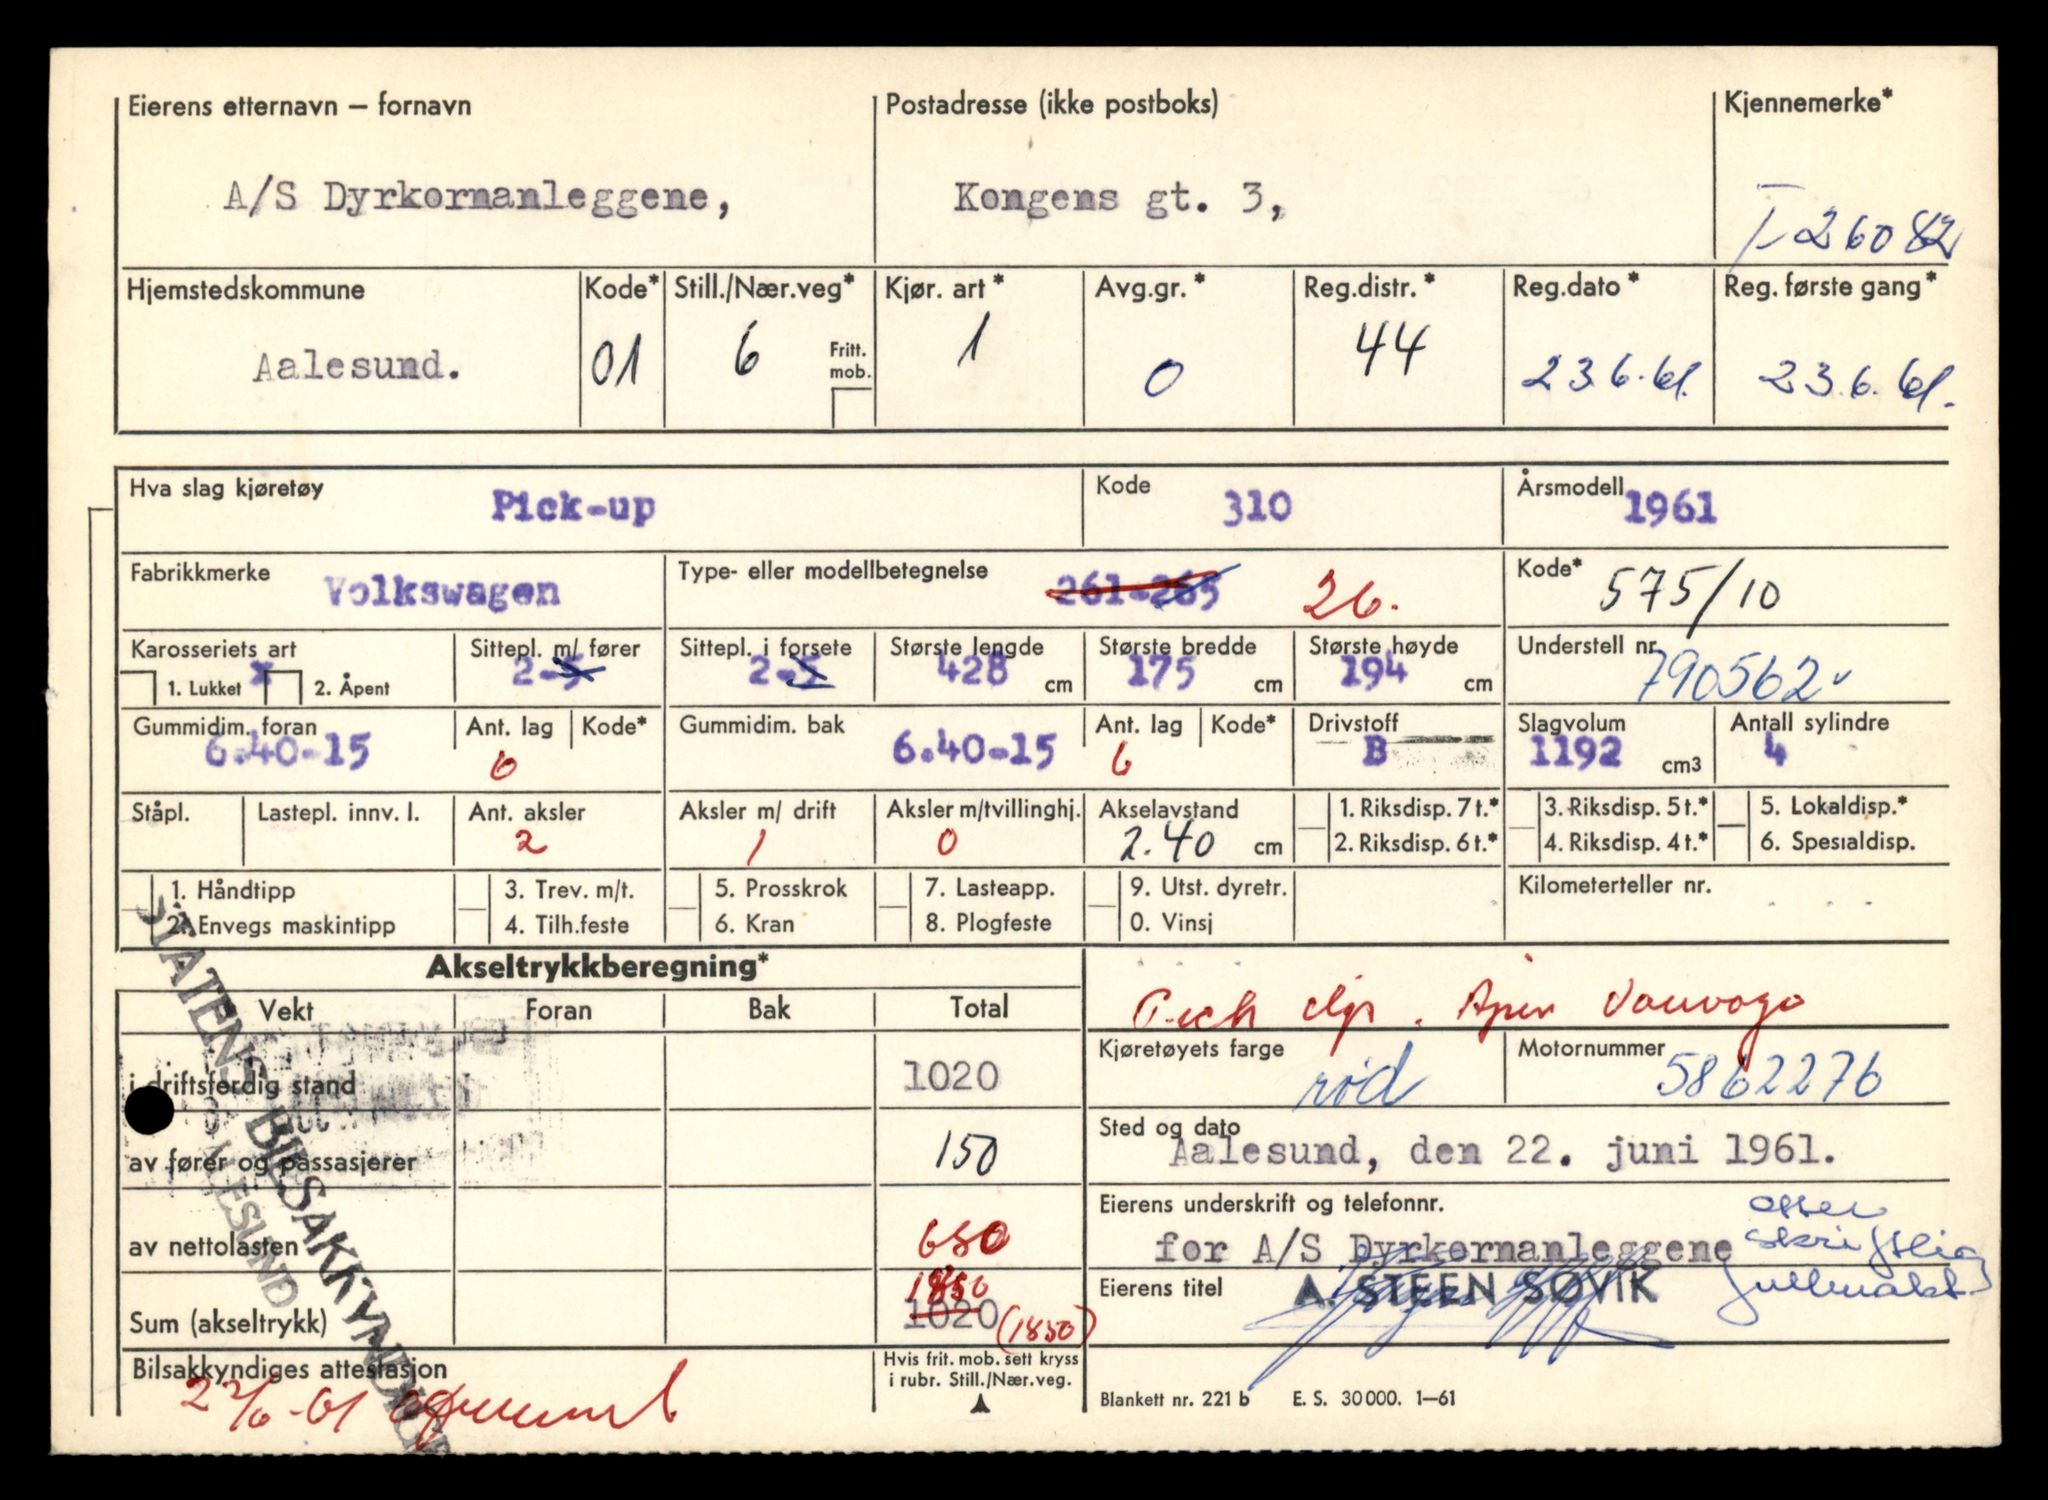 Eierens etternavn — fornavn Postadresse (ikke postboks) Kjennemerke*
A/S Dyrkornanleggene, Kongens gt. 3, T-26082
Hjemstedskommune Kode* Still./Nær.veg* Kjør. art* Avg.gr.* Reg.distr.* Reg.dato* Reg. første gang*
Aalesund. 01 6 Fritt. mob. 1 0 44 23.6.61. 23.6.61.
Hva slag kjøretøy Pick-up Kode 310 Årsmodell 1961
Fabrikkmerke Volkswagen Type- eller modellbetegnelse 261-265 26. Kode* 575/10
Karosseriets art Sittepl. m/ fører Sittepl. i forsete Største lengde Største bredde Største høyde Understell nr.
1. Lukket x 2. Åpent 2-5 2-5 428 cm 175 cm 194 cm 790562
Gummidim. foran Ant. lag Kode* Gummidim. bak Ant. lag Kode* Drivstoff Slagvolum Antall sylindre
6.40-15 6 6.40-15 6 B 1192 cm3 4
Ståpl. Lastepl. innv. l. Ant. aksler Aksler m/ drift Aksler m/tvillinghj. Akselavstand 1. Riksdisp. 7 t.* 3. Riksdisp. 5 t.* 5. Lokaldisp.*
2 1 0 2.40 cm 2. Riksdisp. 6 t.* 4. Riksdisp. 4 t.* 6. Spesialdisp.
1. Håndtipp 3. Trev. m/t. 5. Prosskrok 7. Lasteapp. 9. Utst. dyretr. Kilometerteller nr.
2. Envegs maskintipp 4. Tilh.feste 6. Kran 8. Plogfeste 0. Vinsj
STATENS BILSAKKYNDIGE
AALESUND
Akseltrykkberegning*
Vekt Foran Bak Total
i driftsferdig stand 1020
av fører og passasjerer 150
av nettolasten 680
1850
Sum (akseltrykk) 1020 (1850)
Bilsakkyndiges attestasjon
22/6-61
Hvis frit. mob. sett kryss
i rubr. Still./Nær.veg.
Åpen Varevogn
Kjøretøyets farge rød Motornummer 5862276
Sted og dato
Aalesund, den 22. juni 1961.
Eierens underskrift og telefonnr.
for A/S Dyrkornanleggene
etter
skriftlig
fullmakt
Eierens titel A. STEEN SØVIK
Blankett nr. 221 b E. S. 30000. 1—61